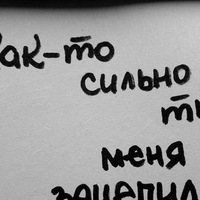 Как-то
сильно
ты
меня
зацепил